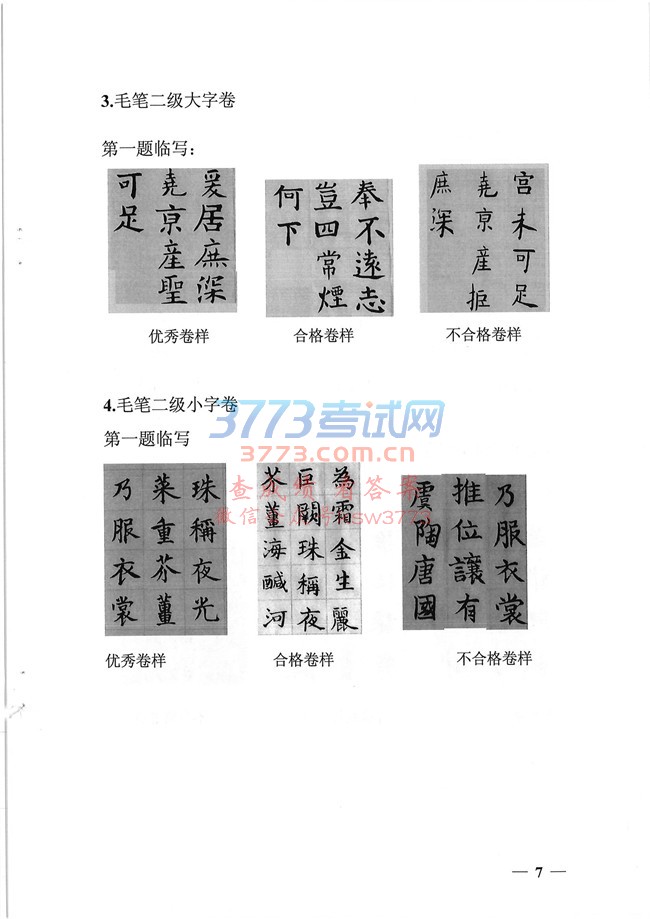 3.毛笔二级大字卷
第一题临写：
爰居庶深
堯亰産聖
可足
奉不遠志
豈四常煙
何下
宫未可足
堯亰産拒
庶深
优秀卷样
合格卷样
不合格卷样
4.毛笔二级小字卷
3773考试网
3773.com.cn
第一题临写
查成绩 看答案
微信公众号:sw3773
珠稱夜光
菜重芥薑
乃服衣裳
為霜金生麗
巨闕珠稱夜
芥薑海鹹河
乃服衣裳
推位讓有
虞陶唐國
优秀卷样
合格卷样
不合格卷样
— 7 —